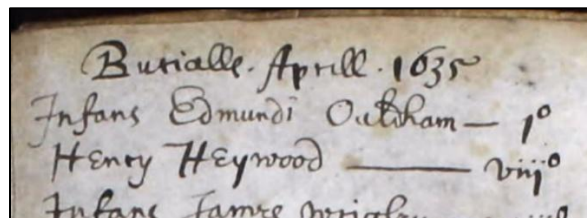 Burialls. Aprill. 1635
Infans Edmundi Ouldham — 1º
Henry Heywood — viijº
Infans James Wrigley